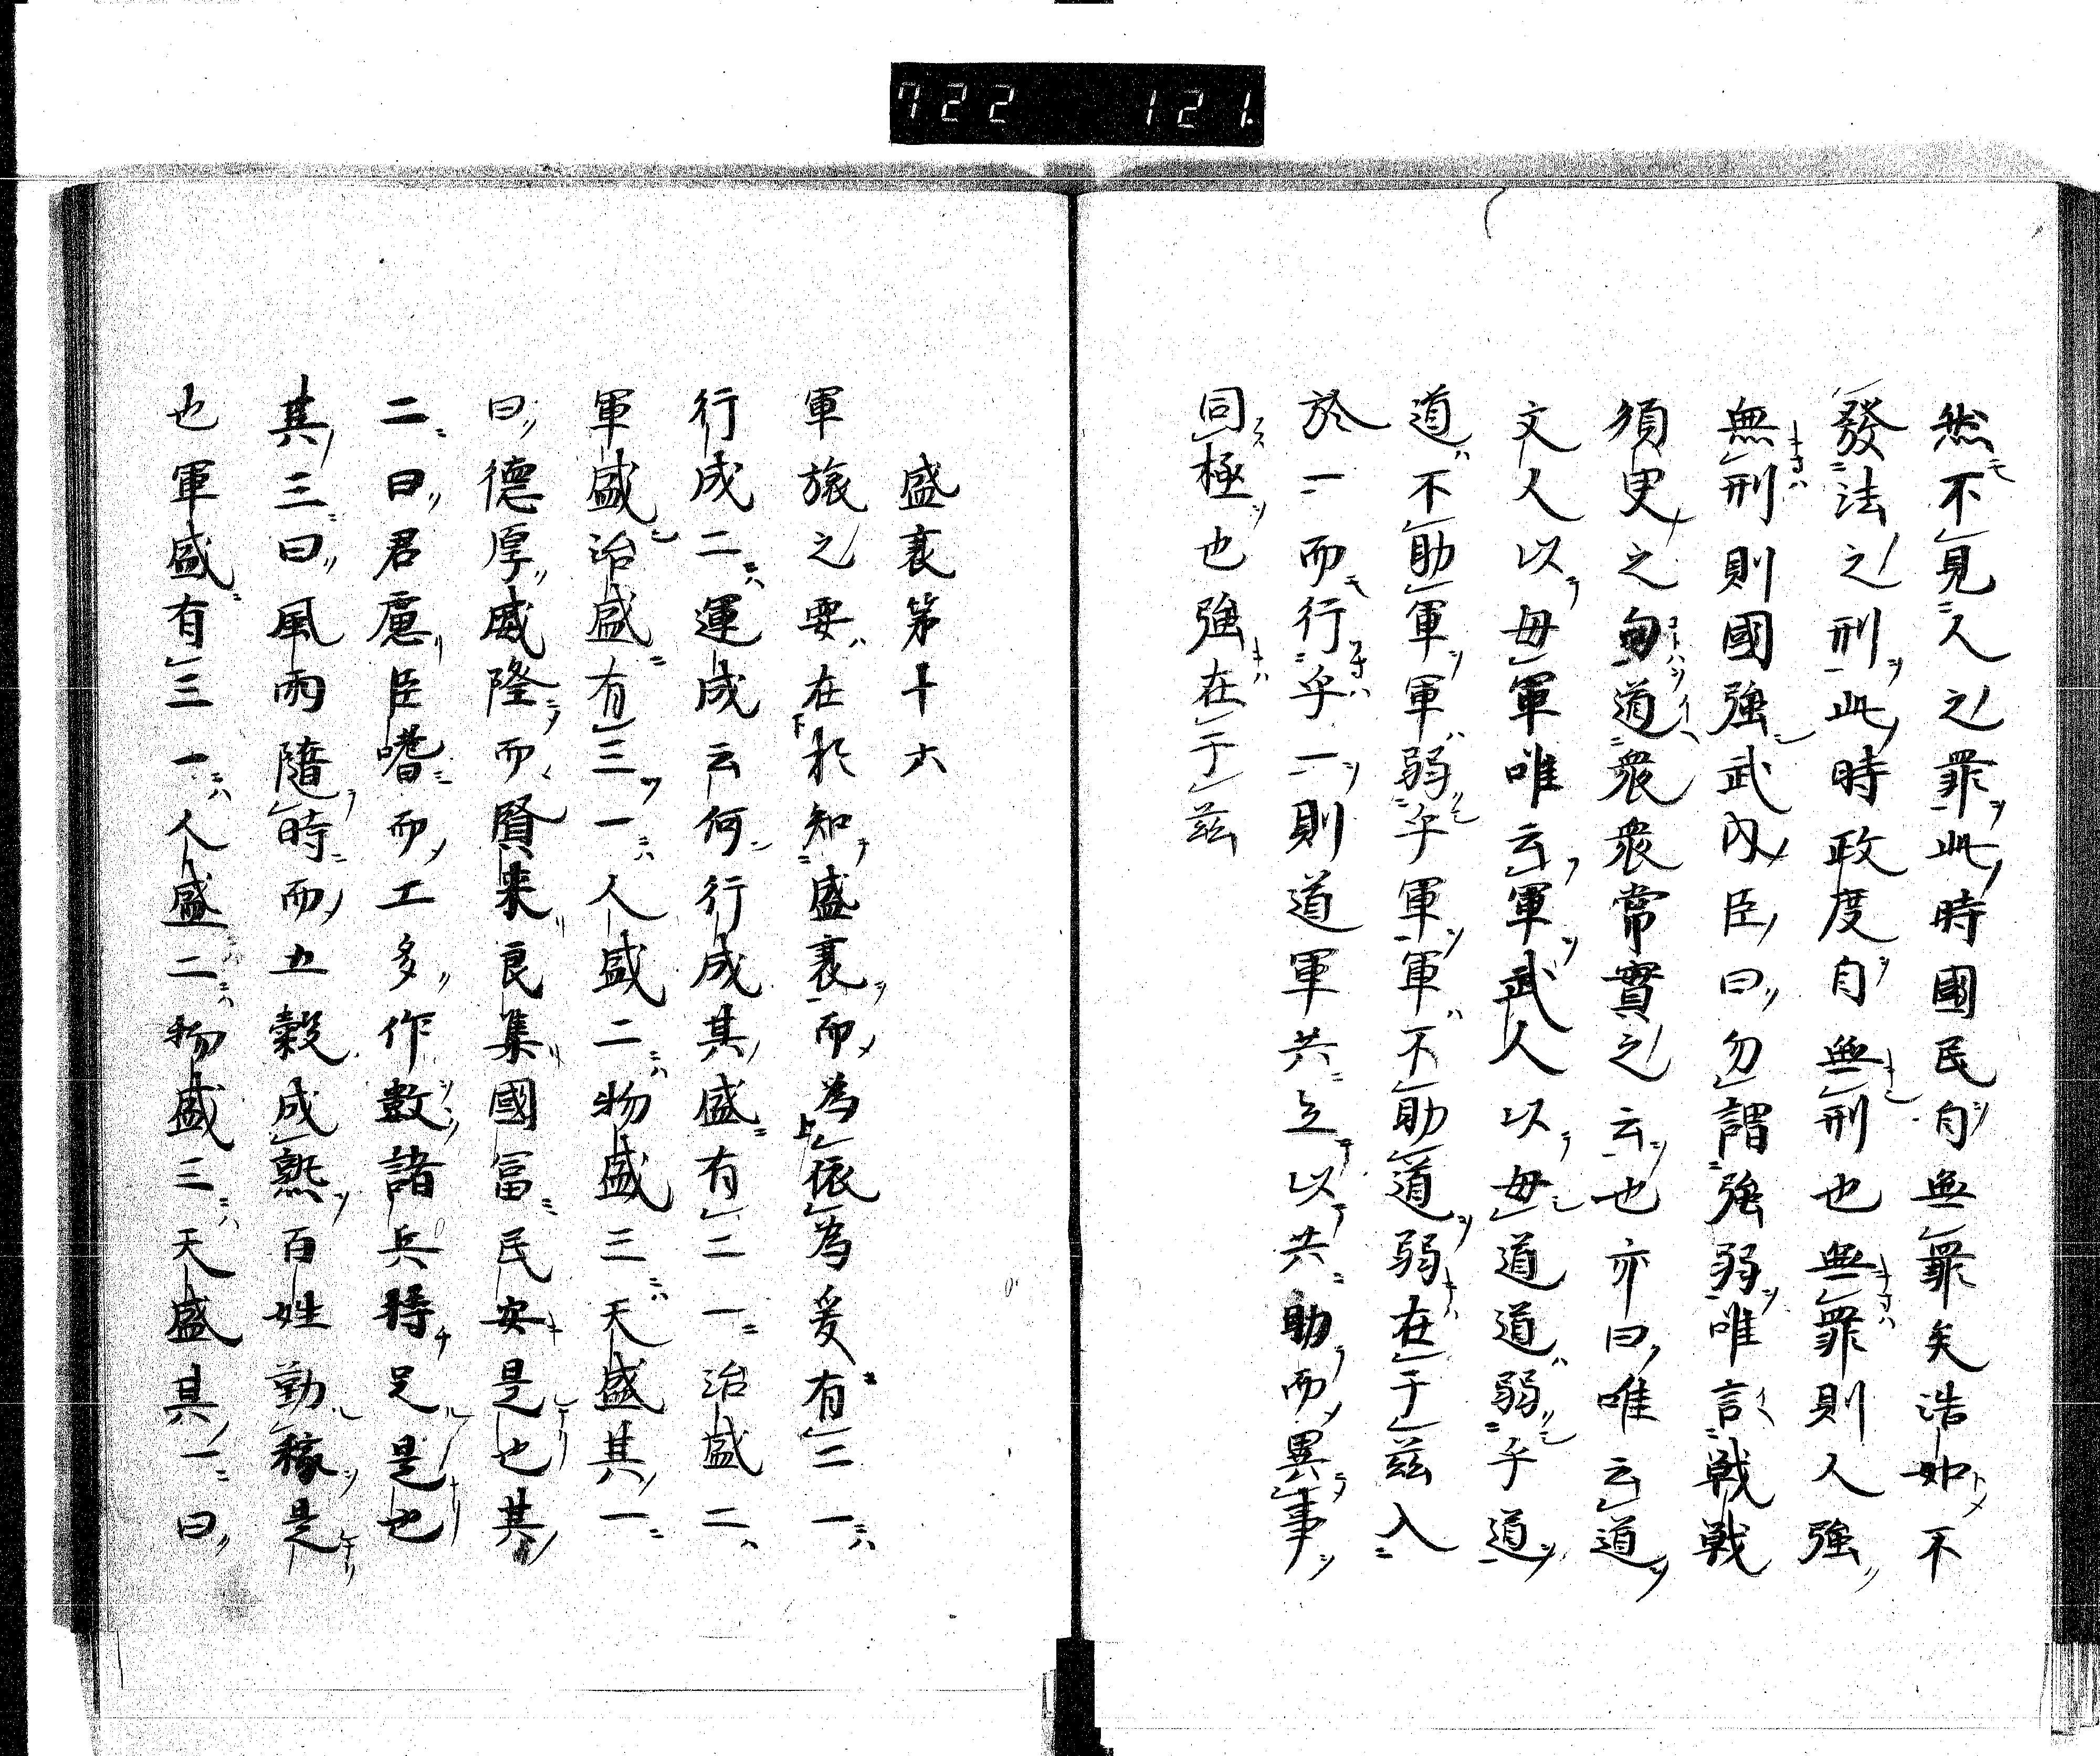 722 121.
然不見人之罪此時國民自無罪矣浩如不
發法之刑此時政度自無刑也無罪則人強
無刑則國強武内臣曰勿謂強弱唯言戦戦
須臾之旬道衆衆常實之云也亦曰唯云道
文人以毋軍唯云軍武人以毋道道弱乎道
道不助軍軍弱乎軍軍不助道弱在于茲入
於一而行乎一則道軍共立以共助而異事
同極也強在于茲
盛衰第十六
軍旅之要在於知盛衰而為依為爰有三一
行成二運成云何行成其盛有二一治盛二
軍盛治盛有三一人盛二物盛三天盛其一
曰德厚威隆而賢来良集國冨民安是也其
二曰君慮臣嗜而工多作數諸兵將足是也
其三曰風雨随時而五穀成熟百姓勤稼是
也軍盛有三一人盛二物盛三天盛其一曰